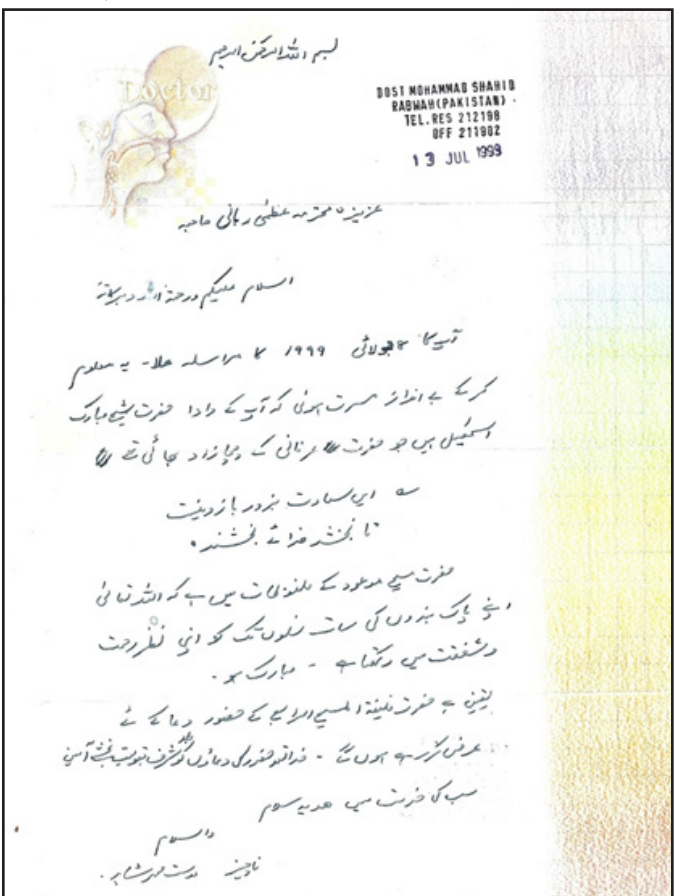 بسم اللہ الرحمن الرحیم
Doctor
DOST MOHAMMAD SHAHID
RABWAH(PAKISTAN)
TEL.RES 212198
OFF 211902
13 JUL 1999
عزیزہ محترمہ عظمیٰ ربانی صاحبہ
السلام علیکم ورحمۃ اللہ وبرکاتہ
آپ کا جولائی 1999 کا مراسلہ ملا۔ یہ معلوم
کرکے بے انداز مسرت ہوئی کہ آپ کے دادا حضرت شیخ مبارک
اسمٰعیل ہیں جو حضرت عرفانی کے چچا زاد بھائی تھے
؎ ایں سعادت بزور بازو نیست
تا نہ بخشد خدائے بخشندہ
حضرت مسیح موعود کے ملفوظات میں ہے کہ اللہ تعالیٰ
اپنے پاک بندوں کی سات نسلوں تک کو اپنی نظر رحمت
و شفقت میں رکھتا ہے - مبارک ہو۔
یقین ہے حضرت خلیفۃ المسیح الرابع کے حضور دعا کے لئے
عرض کررہے ہوں گے - خدا تعالیٰ حضور کی دعاؤں کو شرف قبولیت بخشے آمین
سب کی خدمت میں ھدیہ سلام
والسلام
ناچیز دوست محمد شاہد